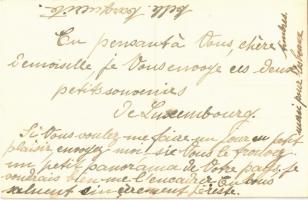 Melle. Marguerite.
En pensant à Vous, chère
Demoiselle, je Vous envoye ces deux
petits souvenirs
de Luxembourg.
Si Vous voulez me faire un jour un petit
plaisir, envoyez-moi si Vous le trouvez
un petit panorama de Votre pays, je
voudrais bien me l'encadrer. En vous
saluant sincèrement
merci pour